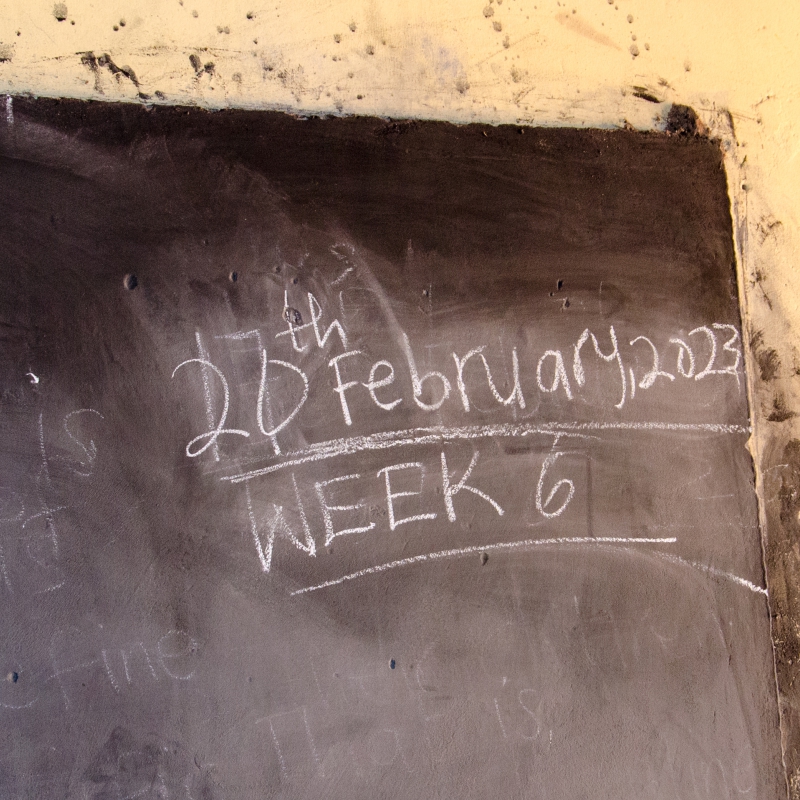 20th February, 2023
WEEK 6
is
efine
is,